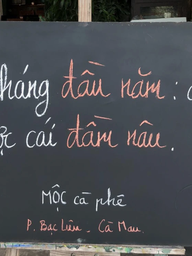 tháng đầu năm :
cái đầm nâu.
MỘC cà phê
P. Bạc Liêu - Cà Mau.